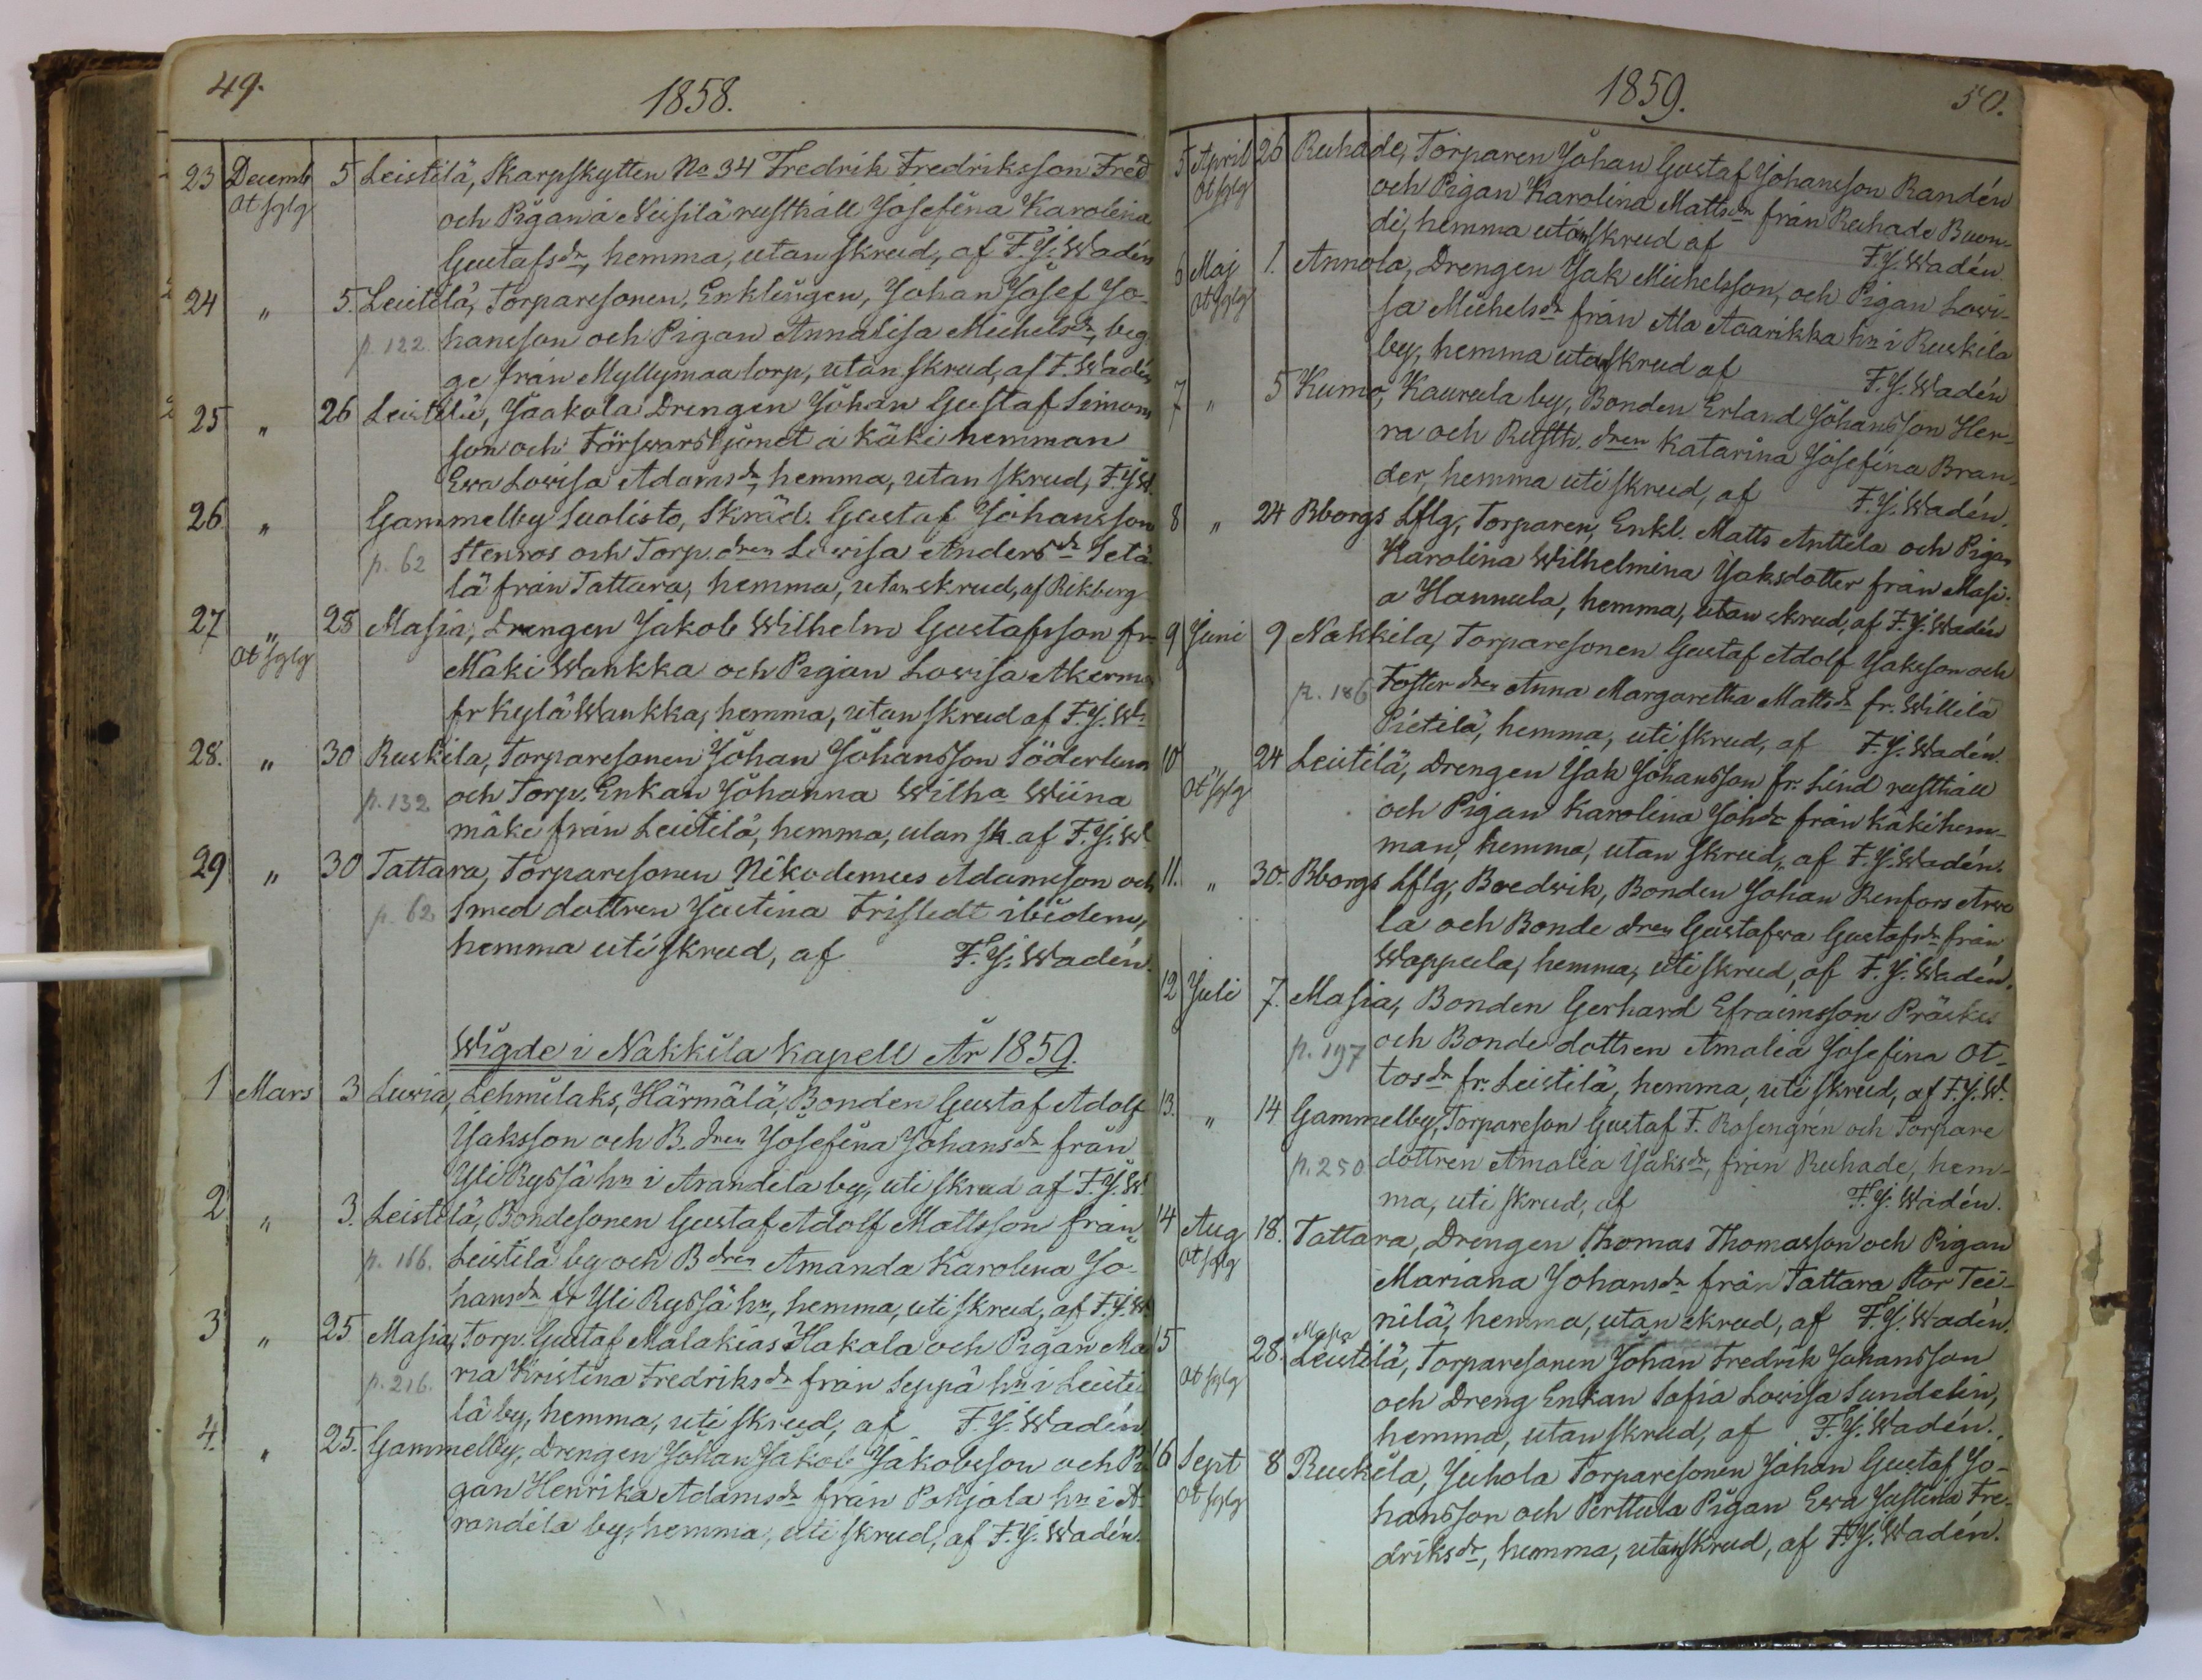 49.
1858.
23 Decemb 5 Leistilä, Skarpskytten No 34 Fredrik Fredriksson Fred
Ot fglg och Pigan å Neisilä rusthåll Josefina Karolina
Gustafsdr, hemma, utan skrud, af F.J. Wadén
24 " 5. Leistilä, Torparesonen, Enklingen, Johan Josef Jo-
p. 122. hansson och Pigan Annalisa Michelsdr, beg
ge från Myllymaa torp, utan skrud, af F. Wadén
25 " 26 Leistilä, Jaakola Drengen Johan Gustaf Simons
son och Förswarshjonet å Käki hemman
Ewa Lowisa Adamsdr, hemma, utan skrud, F.J.W.
26 " Gammelby Suolisto, Skräd. Gustaf Johansson
p. 62 Stenros och Torp.dren Lowisa Andersdr Setä
lä från Tattara, hemma, utan skrud, af Rikberg
27 " 28 Masia, Drengen Jakob Wilhelm Gustafsson fr
Ot fglg Maki Wankka och Pigan Lowisa Akerma
fr Kylä Wankka, hemma, utan skrud af F.J. Wn
28. " 30 Ruskila, Torparesonen Johan Johansson Söderlum
p. 132 och Torp. Enkan Johanna Wilha Wiina
mäke från Leistilä, hemma, utan sk. af F.J. W
29 " 30 Tattara, Torparesonen Nikodemus Adamsson och
p. 62 Smed dottren Justina Fristedt ibidem,
hemma uti skrud, af F.J. Wadén.
Wigde i Nakkila Kapell År 1859.
1 Mars 3 Luvia, Lehmilaks, Härmälä, Bonden Gustaf Adolf
Jaksson och B.dren Josefina Johansdr från
Yli Ryssä hn i Arandila by, uti skrud af F.J.W
2 " 3. Leistilä, Bondesonen Gustaf Adolf Mattsson från
p. 166. Leistilä by och B dren Amanda Karolina Jo-
hansdr fr Yli Ryssä hn, hemma, uti skrud, af F.J.W
3 " 25 Masia, Torp. Gustaf Malakias Hakala och Pigan Ma
p. 216. ria Kristina Fredriksdr från Seppä hn i Leisti
lä by, hemma, uti skrud, af F.J. Wadén
4. " 25. Gammelby, Drengen Johan Jakob Jakobsson och Pi
gan Henrika Adamsdr från Pohjala hn i A
randila by, hemma, uti skrud, af F.J. Wadén.
1859.
50.
5 April 26 Ruhade, Torparen Johan Gustaf Johansson Randén
Ot fglg och Pigan Karolina Mattsdr från Ruhade Buon-
di, hemma utan skrud af F.J. Wadén.
6 Maj 1. Annola, Drengen Jak Michelsson, och Pigan Lowi-
Ot fglg sa Michelsdr från Ala Aaarikka hn i Ruskila
by, hemma utan skrud af F.J. Wadén
7 " 5 Kumo, Kaurula by, Bonden Erland Johansson Her-
ra och Rusth. dren Katarina Josefina Bran-
der, hemma uti skrud, af F.J. Wadén.
8 " 24 Bborgs Lflg, Torparen, Enkl. Matts Anttila och Pigan
Karolina Wilhelmina Jaksdotter från Masi-
a Hannula, hemma, utan skrud, af F.J. Wadén
9 Juni 9 Nakkila, Torparesonen Gustaf Adolf Jaksson och
p. 186 Foster dren Anna Margaretha Mattsdr fr. Willilä
Pietilä, hemma, uti skrud, af F.J. Wadén.
10 " 24 Leistilä, Drengen Jak Johansson fr. Lind rusthåll
Ot fglg och Pigan Karolina Johdr från Käki hem-
man, hemma, utan skrud, af F.J. Wadén.
11. " 30. Bborgs Lflg, Boedwik, Bonden Johan Renfors Arwe
la och Bonde dren Gustafwa Gustafsdr från
Wappula, hemma, uti skrud, af F.J. Wadén.
12 Juli 7. Masia, Bonden Gerhard Efraimsson Präski
p. 197 och Bonde dottren Amalia Josefina Ot-
tosdr fr. Leistilä, hemma, uti skrud, af F.J.W.
13. " 14 Gammelby, Torpareson Gustaf F. Rosengrén och Torpare
p. 250 dottren Amalia Jaksdr, från Ruhade, hem-
ma, uti skrud, af F.J. Wadén.
14 Aug 18. Tattara, Drengen Thomas Thomasson och Pigan
Ot fglg Mariana Johansdr från Tattara Stor Tei-
nilä, hemma, utan skrud, af F.J. Wadén.
Masia
15 28. Leistilä, Torparesonen Johan Fredrik Johansson
Ot fglg och Dreng Enkan Sofia Lowisa Sundelin,
hemma, utan skrud, af F.J. Wadén.
16 Sept 8 Ruskila, Juhola Torparesonen Johan Gustaf Jo-
Ot fglg hansson och Perttula Pigan Ewa Justina Fre-
driksdr, hemma, utan skrud, af F.J. Wadén.